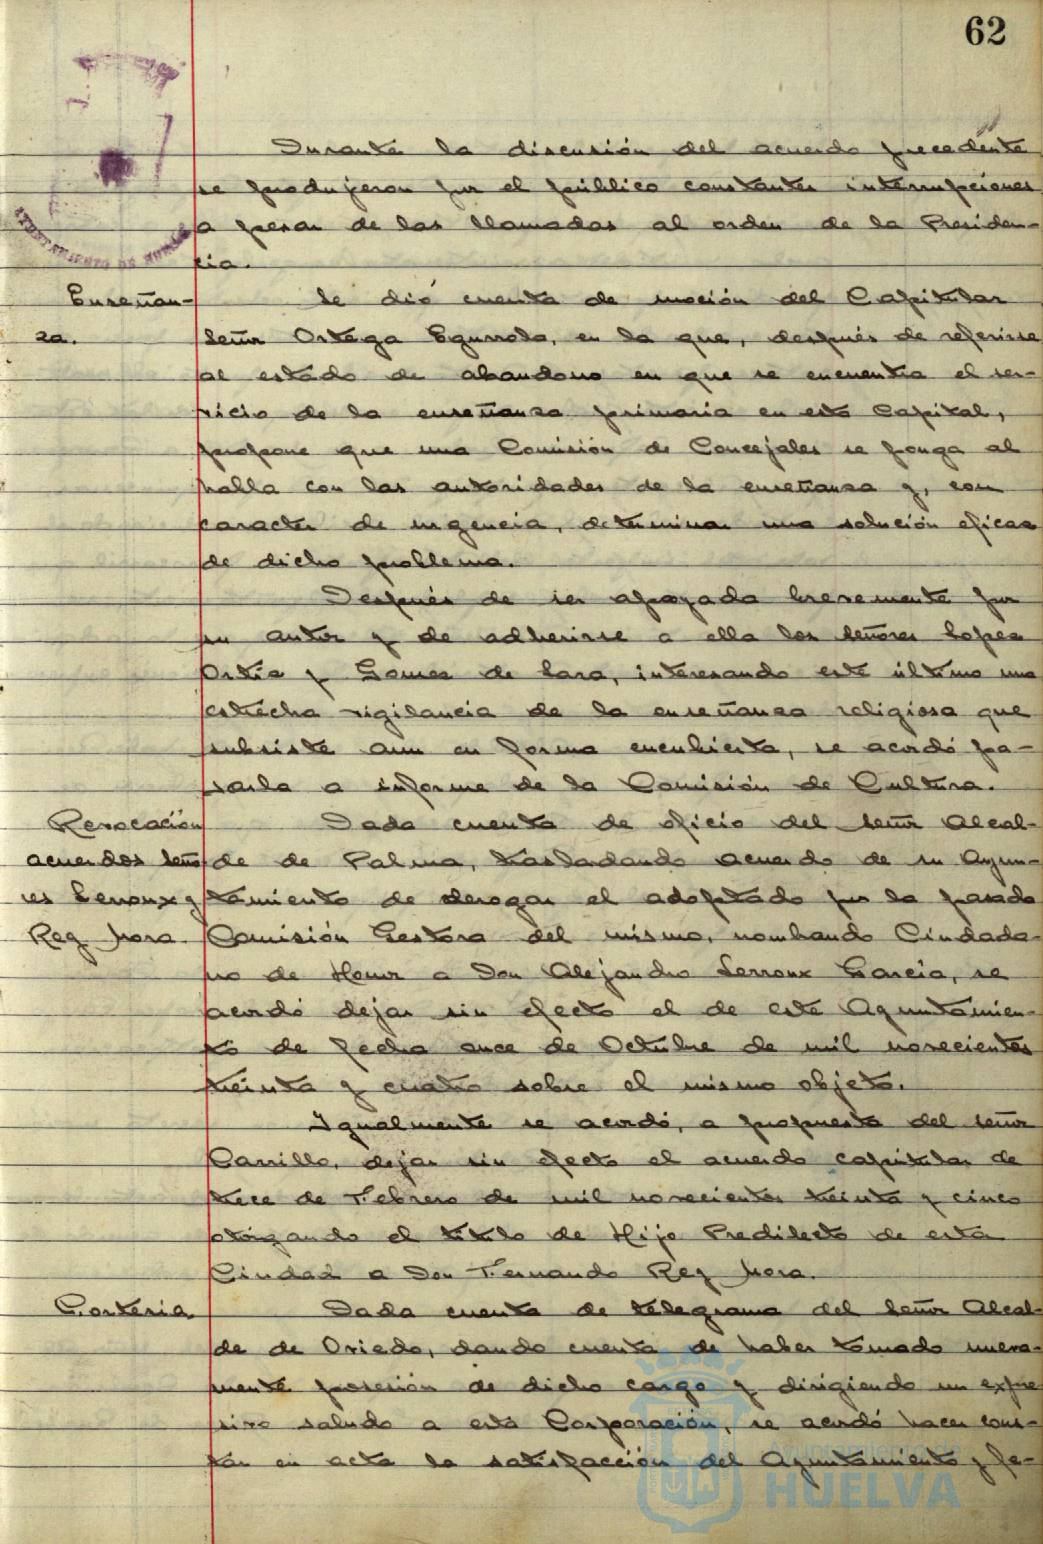 62
AYUNTAMIENTO DE HUELVA
Durante la discusión del acuerdo precedente
se produjeron por el público constantes interrupciones
a pesar de las llamadas al orden de la Presiden-
cia.
Enseñan-
za.
Se dió cuenta de moción del Capitular
señor Ortega Egurrola, en la que, después de referirse
al estado de abandono en que se encuentra el ser-
vicio de la enseñanza primaria en esta Capital,
propone que una Comisión de Concejales se ponga al
habla con las autoridades de la enseñanza y, con
caracter de urgencia, determinar una solución eficaz
de dicho problema.
Después de ser apoyada brevemente por
su autor y de adherirse a ella los señores Lopez
Ortiz y Gomez de Lara, interesando este último una
estrecha vigilancia de la enseñanza religiosa que
subsiste aun en forma encubierta, se acordó pa-
sarla a informe de la Comisión de Cultura.
Revocación
acuerdos seño
res Lerroux y
Rey Mora.
Dada cuenta de oficio del señor Alcal-
de de Palma, trasladando acuerdo de su Ayun-
tamiento de derogar el adoptado por la pasada
Comisión Gestora del mismo, nombrando Ciudada-
no de Honor a Don Alejandro Lerroux Garcia, se
acordó dejar sin efecto el de este Ayuntamien-
to de fecha once de Octubre de mil novecientos
treinta y cuatro sobre el mismo objeto.
Igualmente se acordó, a propuesta del señor
Carrillo, dejar sin efecto el acuerdo capitular de
trece de Febrero de mil novecientos treinta y cinco
otorgando el título de Hijo Predilecto de esta
Ciudad a Don Fernando Rey Mora.
Cortesia
Dada cuenta de telegrama del señor Alcal-
de de Oviedo, dando cuenta de haber tomado nueva-
mente posesión de dicho cargo y dirigiendo un expre
sivo saludo a esta Corporación, se acordó hacer cons-
tar en acta la satisfacción del Ayuntamiento y fe-
Ayuntamiento de
HUELVA